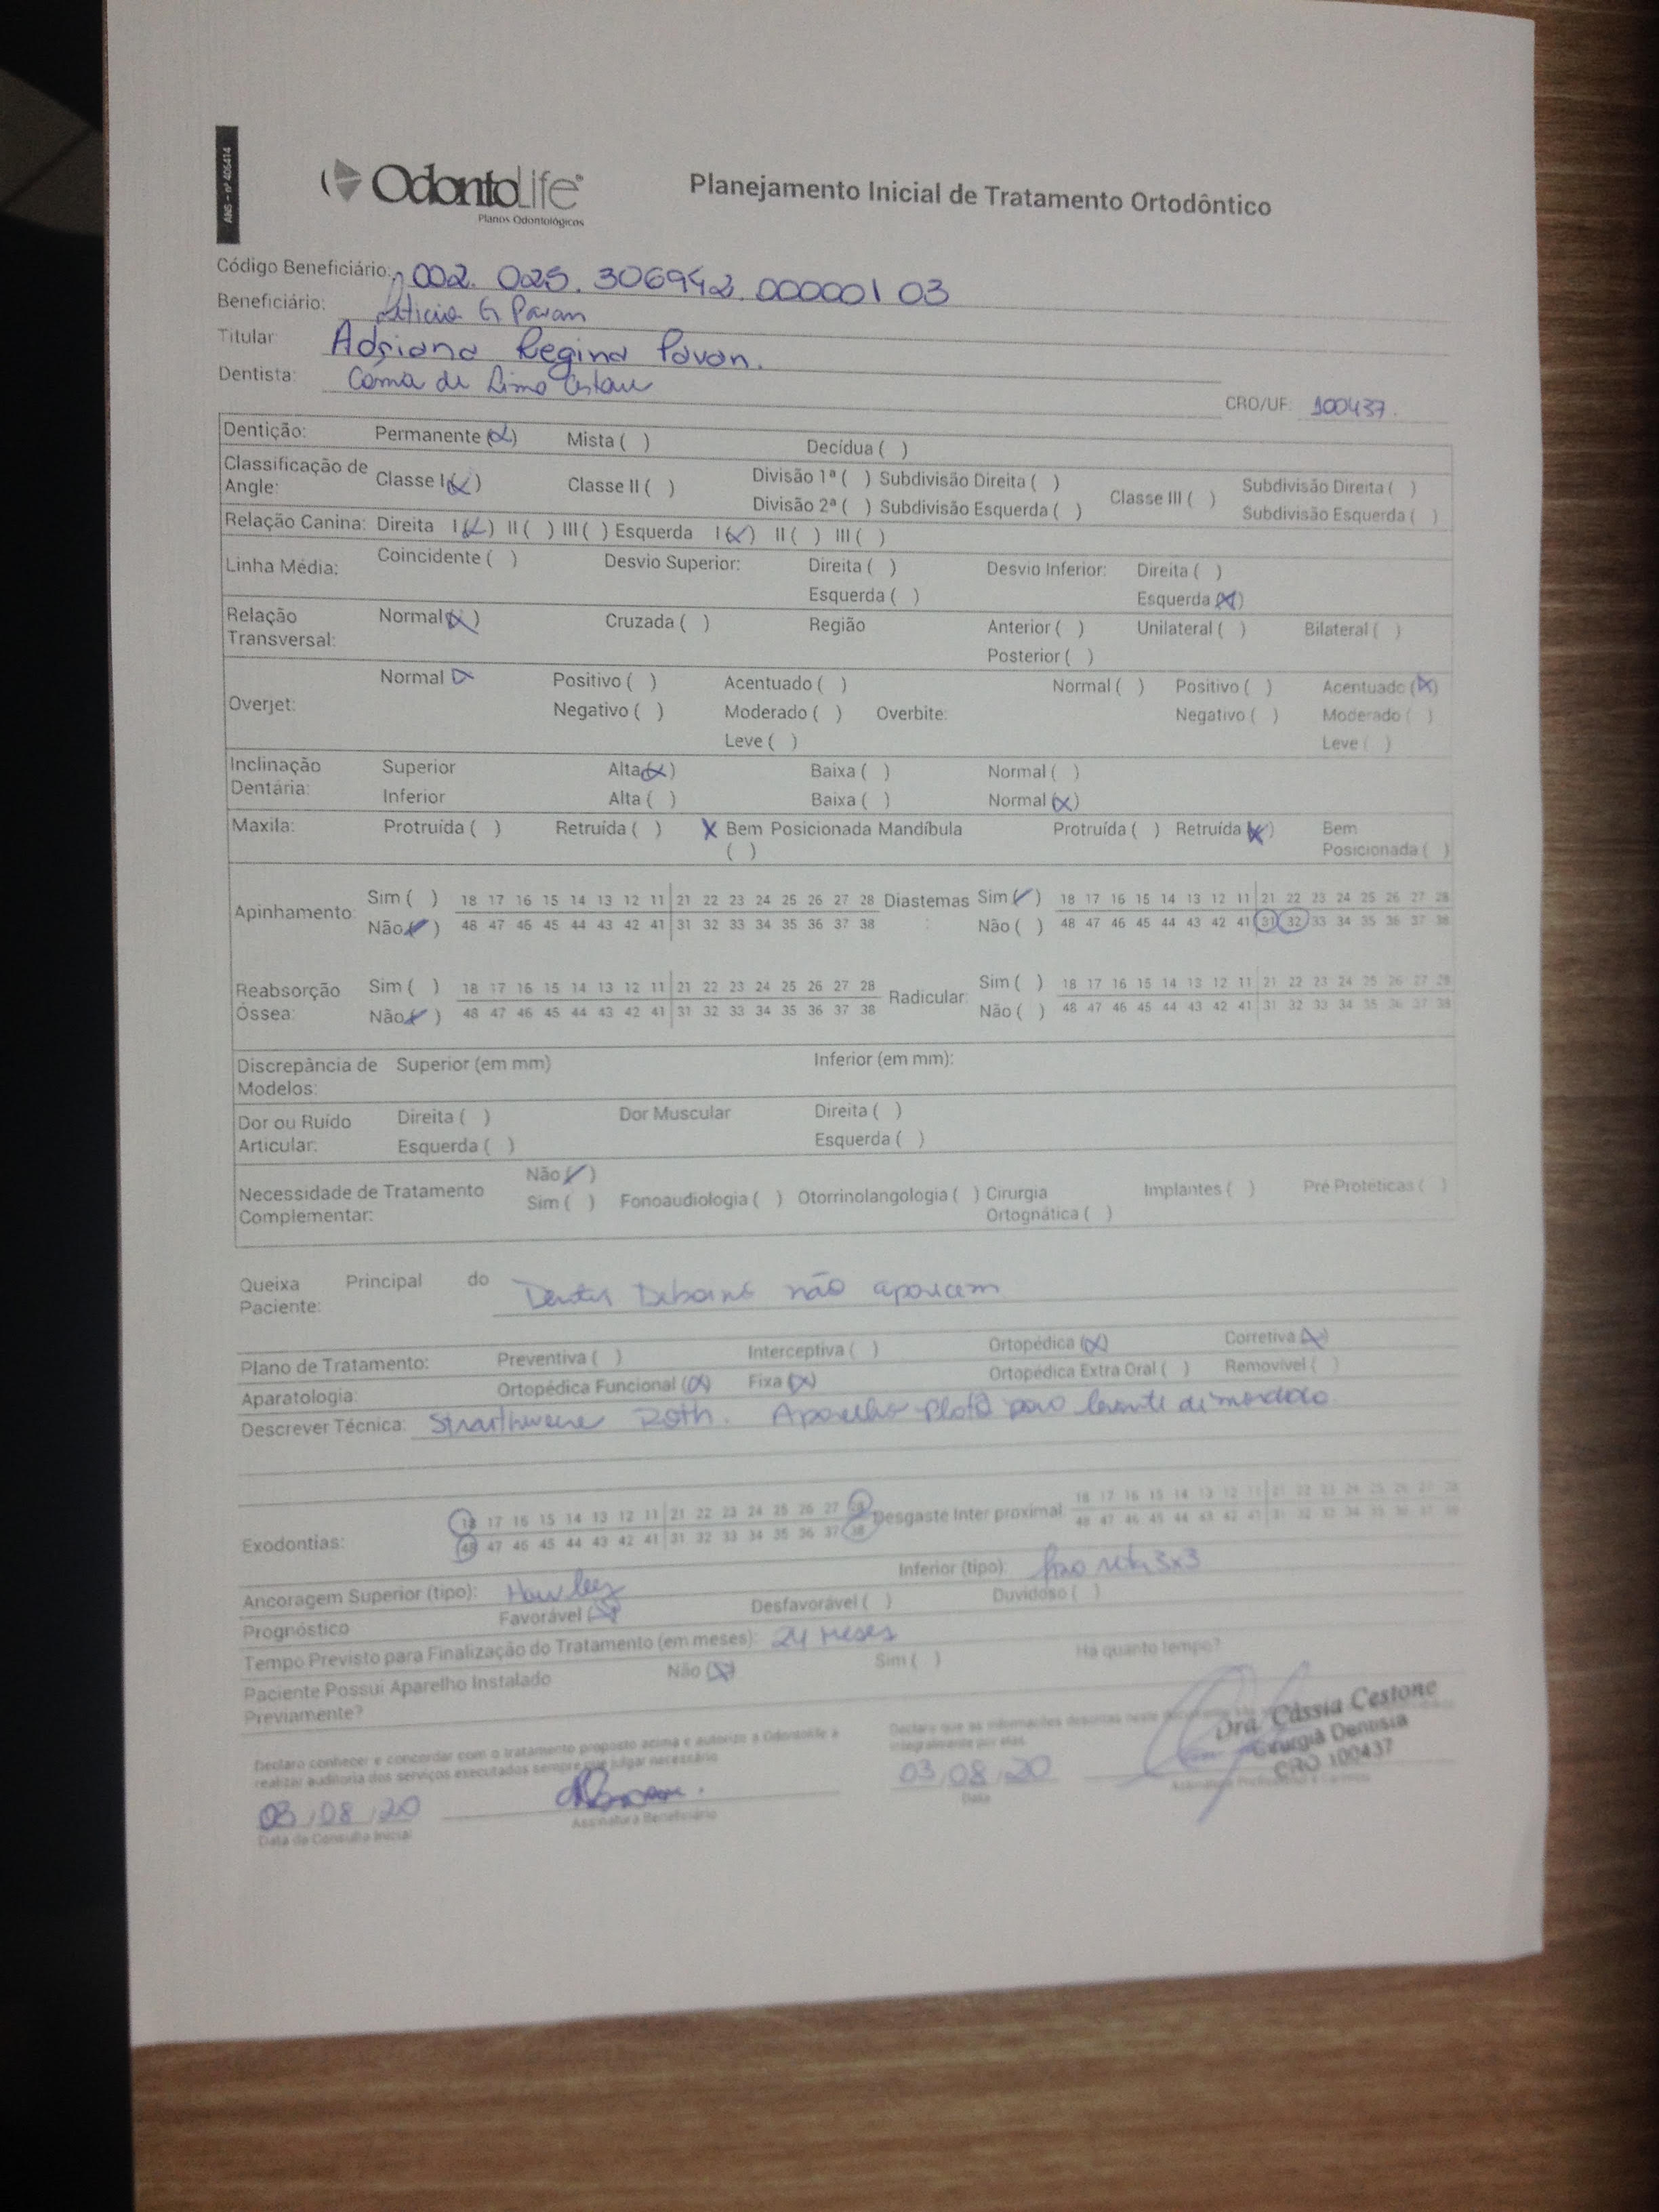 ANS - nº 406414
OdontoLife®
Planos Odontológicos
Planejamento Inicial de Tratamento Ortodôntico
Código Beneficiário: 002. 025. 306942. 000001 03
Beneficiário: Leticia G Pavan
Titular: Adriana Regina Pavan.
Dentista: de Lima
CRO/UF: 100437.
Dentição: Permanente (X) Mista ( ) Decídua ( )
Classificação de Angle: Classe I (X) Classe II ( ) Divisão 1ª ( ) Subdivisão Direita ( ) Classe III ( ) Subdivisão Direita ( )
Divisão 2ª ( ) Subdivisão Esquerda ( ) Subdivisão Esquerda ( )
Relação Canina: Direita I (X) II ( ) III ( ) Esquerda I (X) II ( ) III ( )
Linha Média: Coincidente ( ) Desvio Superior: Direita ( ) Desvio Inferior: Direita ( )
Esquerda ( ) Esquerda (X)
Relação Transversal: Normal (X) Cruzada ( ) Região Anterior ( ) Unilateral ( ) Bilateral ( )
Posterior ( )
Overjet: Normal X Positivo ( ) Acentuado ( ) Normal ( ) Positivo ( ) Acentuado (X)
Negativo ( ) Moderado ( ) Overbite: Negativo ( ) Moderado ( )
Leve ( ) Leve ( )
Inclinação Dentária: Superior Alta (X) Baixa ( ) Normal ( )
Inferior Alta ( ) Baixa ( ) Normal (X)
Maxila: Protruída ( ) Retruída ( ) X Bem Posicionada ( ) Mandíbula Protruída ( ) Retruída (X) Bem Posicionada ( )
Apinhamento: Sim ( ) 18 17 16 15 14 13 12 11 21 22 23 24 25 26 27 28 Diastemas : Sim (✓) 18 17 16 15 14 13 12 11 21 22 23 24 25 26 27 28
Não (✓) 48 47 46 45 44 43 42 41 31 32 33 34 35 36 37 38 Não ( ) 48 47 46 45 44 43 42 41 31 32 33 34 35 36 37 38
Reabsorção Óssea: Sim ( ) 18 17 16 15 14 13 12 11 21 22 23 24 25 26 27 28 Radicular: Sim ( ) 18 17 16 15 14 13 12 11 21 22 23 24 25 26 27 28
Não (✓) 48 47 46 45 44 43 42 41 31 32 33 34 35 36 37 38 Não ( ) 48 47 46 45 44 43 42 41 31 32 33 34 35 36 37 38
Discrepância de Modelos: Superior (em mm) Inferior (em mm):
Dor ou Ruído Articular: Direita ( ) Dor Muscular Direita ( )
Esquerda ( ) Esquerda ( )
Necessidade de Tratamento Complementar: Não (✓)
Sim ( ) Fonoaudiologia ( ) Otorrinolangologia ( ) Cirurgia Ortognática ( ) Implantes ( ) Pré Protéticas ( )
Queixa Principal do Paciente: Dentes Debaixo não aparecem
Plano de Tratamento: Preventiva ( ) Interceptiva ( ) Ortopédica (X) Corretiva (X)
Aparatologia: Ortopédica Funcional (X) Fixa (X) Ortopédica Extra Oral ( ) Removível ( )
Descrever Técnica: Roth. Aparelho para levante de mordida
Exodontias: 18 17 16 15 14 13 12 11 21 22 23 24 25 26 27 28 Desgaste Inter proximal: 18 17 16 15 14 13 12 11 21 22 23 24 25 26 27 28
48 47 46 45 44 43 42 41 31 32 33 34 35 36 37 38 48 47 46 45 44 43 42 41 31 32 33 34 35 36 37 38
Ancoragem Superior (tipo): Hawley Inferior (tipo): 3x3
Prognóstico Favorável (X) Desfavorável ( ) Duvidoso ( )
Tempo Previsto para Finalização do Tratamento (em meses): 24 Meses
Paciente Possui Aparelho Instalado Previamente? Não (X) Sim ( ) Há quanto tempo?
Declaro conhecer e concordar com o tratamento proposto acima e autorizo a Odontolife a
realizar auditoria dos serviços executados sempre que julgar necessário
Declaro que as informações descritas neste
integralmente por elas
03/08/20
Data da Consulta Inicial
Assinatura Beneficiário
03/08/20
Data
Dra. Cássia Cestone
Cirurgiã Dentista
CRO 100437